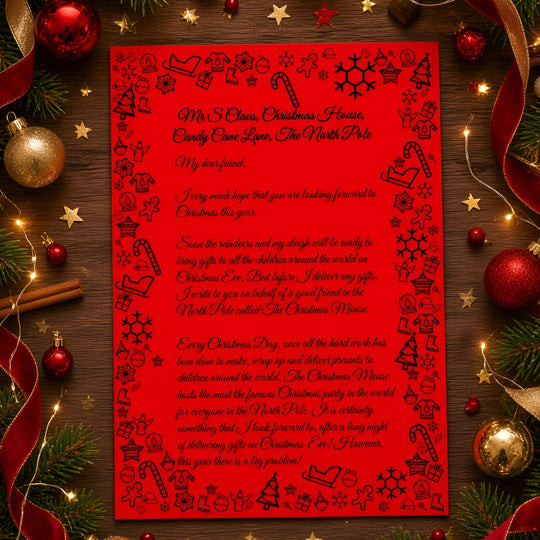 Mr S Claus, Christmas House,
Candy Cane Lane, The North Pole
My dear friend,
I very much hope that you are looking forward to
Christmas this year.
Soon the reindeers and my sleigh will be ready to
bring gifts to all the children around the world on
Christmas Eve. But before, I deliver any gifts,
I write to you on behalf of a good friend in the
North Pole called The Christmas Mouse.
Every Christmas Day, once all the hard work has
been done to make, wrap up and deliver presents to
children around the world. The Christmas Mouse
hosts the most the famous Christmas party in the world
for everyone in the North Pole. It is certainly
something that I look forward to, after a long night
of delivering gifts on Christmas Eve! However,
this year there is a big problem!